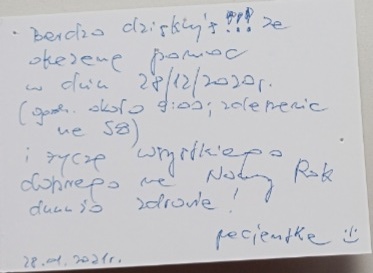 Bardzo dziękuję !!! za
okazaną pomoc
w dniu 28/12/2020r.
(godz. około 9:00; zdarzenie
na S8)
i życzę wszystkiego
dobrego na Nowy Rok
dużo zdrowia!
pacjentka
28.01.2021r.